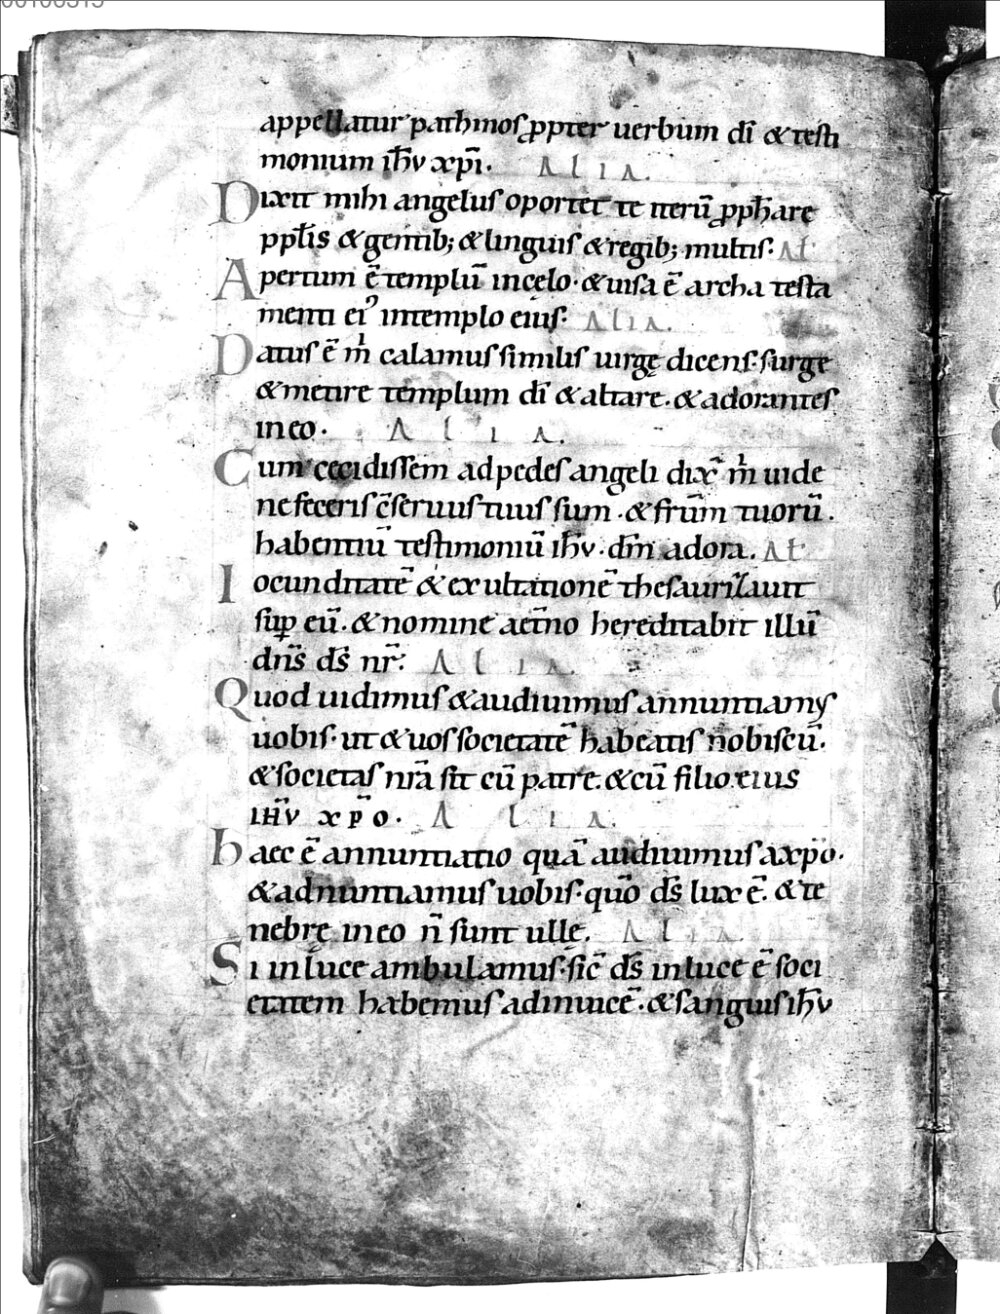 appellatur pathmoſ ꝓpter uerbum dī & teſti
monium ih̄v xp̄i. ALIA.
Dixit mihi angelus oportet te iterū ꝓph̄are
ppl̄is & gentib; & linguiſ & regib; multiſ. Al
Apertum ē templū incelo. & uiſa ē archa teſta
menti eiꝰ intemplo eiuſ. ALIA.
Datuſ ē m̄ calamuſ ſimiliſ uirgę dicenſ. ſurge
& metire templum dī & altare. & adoranteſ
ineo. ALIA.
Cum cecidiſſem adpedeſ angeli dix̄ m̄ uide
nefeceriſ c̄ſeruuſ tuuſ ſum. & fr̄um tuorū.
habentiū teſtimoniū ih̄v. dm̄ adora. Al
Iocunditatē & exultationē theſaurizauit
ſuꝑ eū. & nomine aet̄no hereditabit illū
dn̄s ds̄ nr̄. ALIA.
Quod uidimuſ & audiuimuſ annuntiamꝰ
uobiſ. ut & uoſ ſocietatē habeatiſ nobiſcū.
& ſocietaſ nr̄a ſit cū patre. & cū filio eius
ih̄v xp̄o. ALIA.
haec ē annuntiatio quā audiuimuſ axp̄o.
& adnuntiamuſ uobiſ. quō ds̄ lux ē. & te
nebrę ineo n̄ ſunt ullę. ALIA.
Si inluce ambulamuſ. ſic̄ ds̄ inluce ē ſoci
etatem habemuſ adinuicē. & ſanguiſ ih̄v